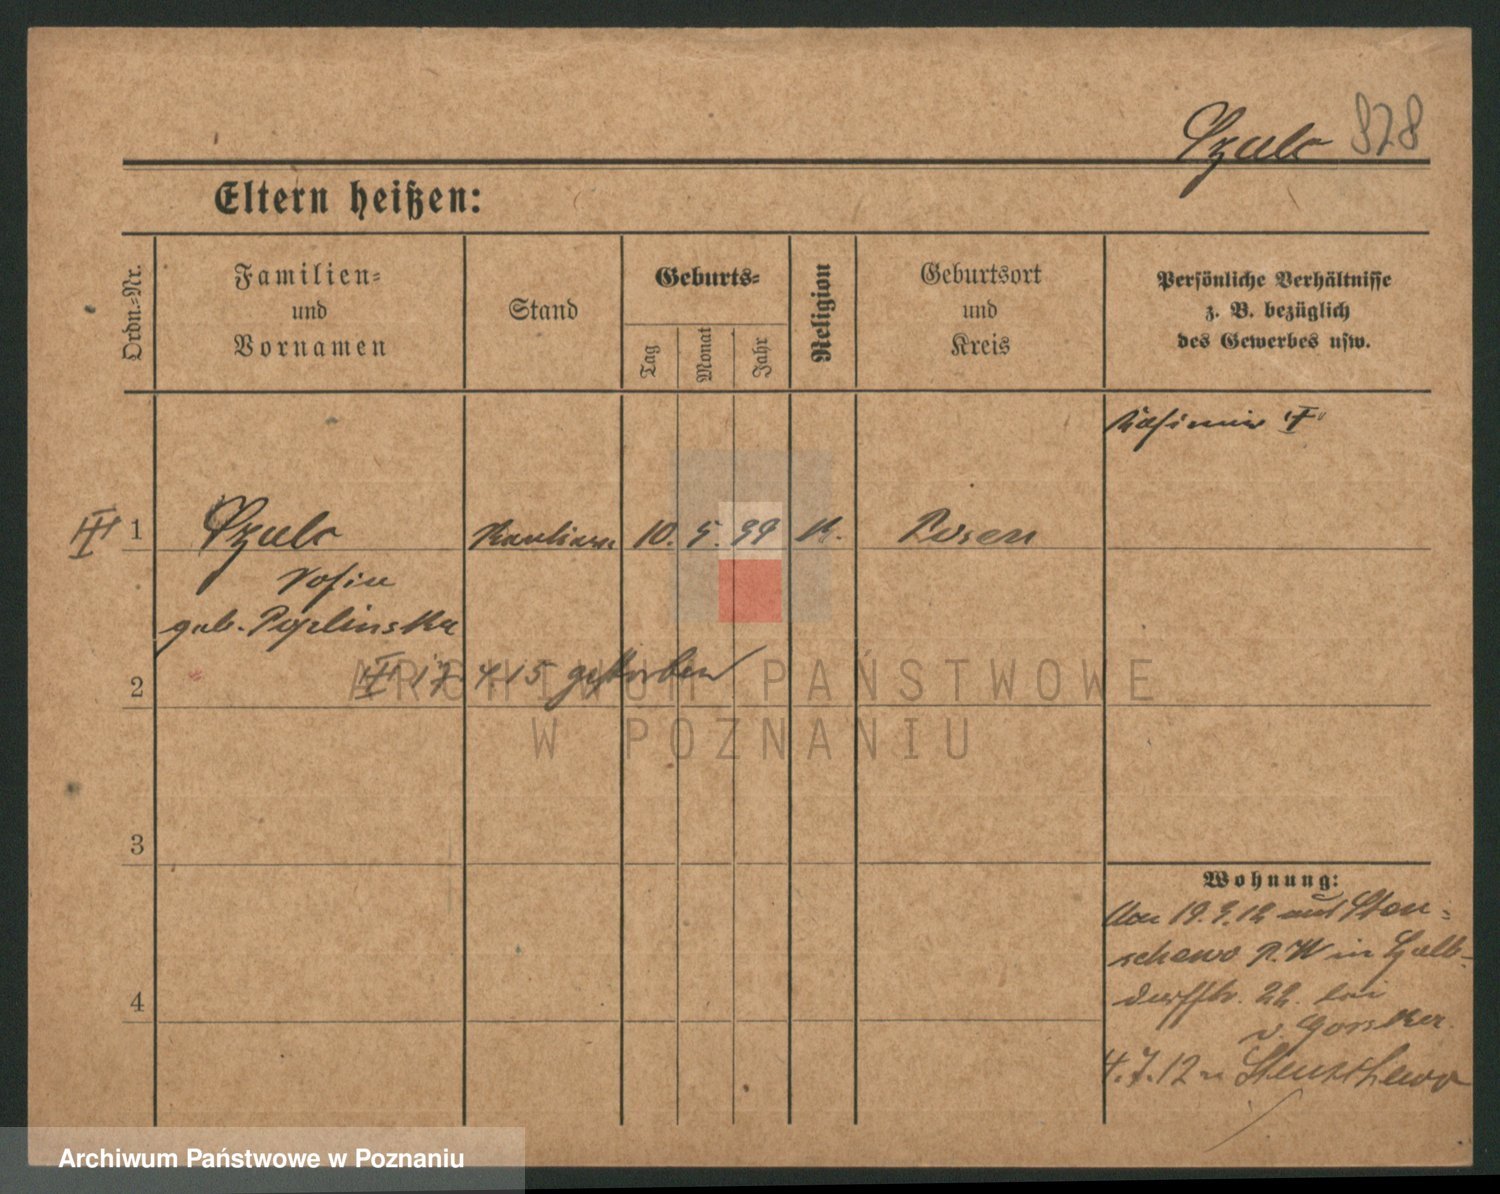 Szulc 828
Eltern heißen:
Ordn.-Nr.
Familien-
und
Vornamen
Stand
Geburts-
Tag
Monat
Jahr
Religion
Geburtsort
und
Kreis
Persönliche Verhältnisse
z. B. bezüglich
des Gewerbes usw.
Kasimir †
1 Szulc 10. 5. K. Posen
geb.
2 17. 4. 15 gestorben
3
4
Wohnung:
Von 19. 3. 12 aus Sten-
schewo P. W in Halb-
dorfstr. 22. bei
v. Gorska.
4. 7. 12 n Stenschewo
ARCHIWUM PAŃSTWOWE
W POZNANIU
Archiwum Państwowe w Poznaniu